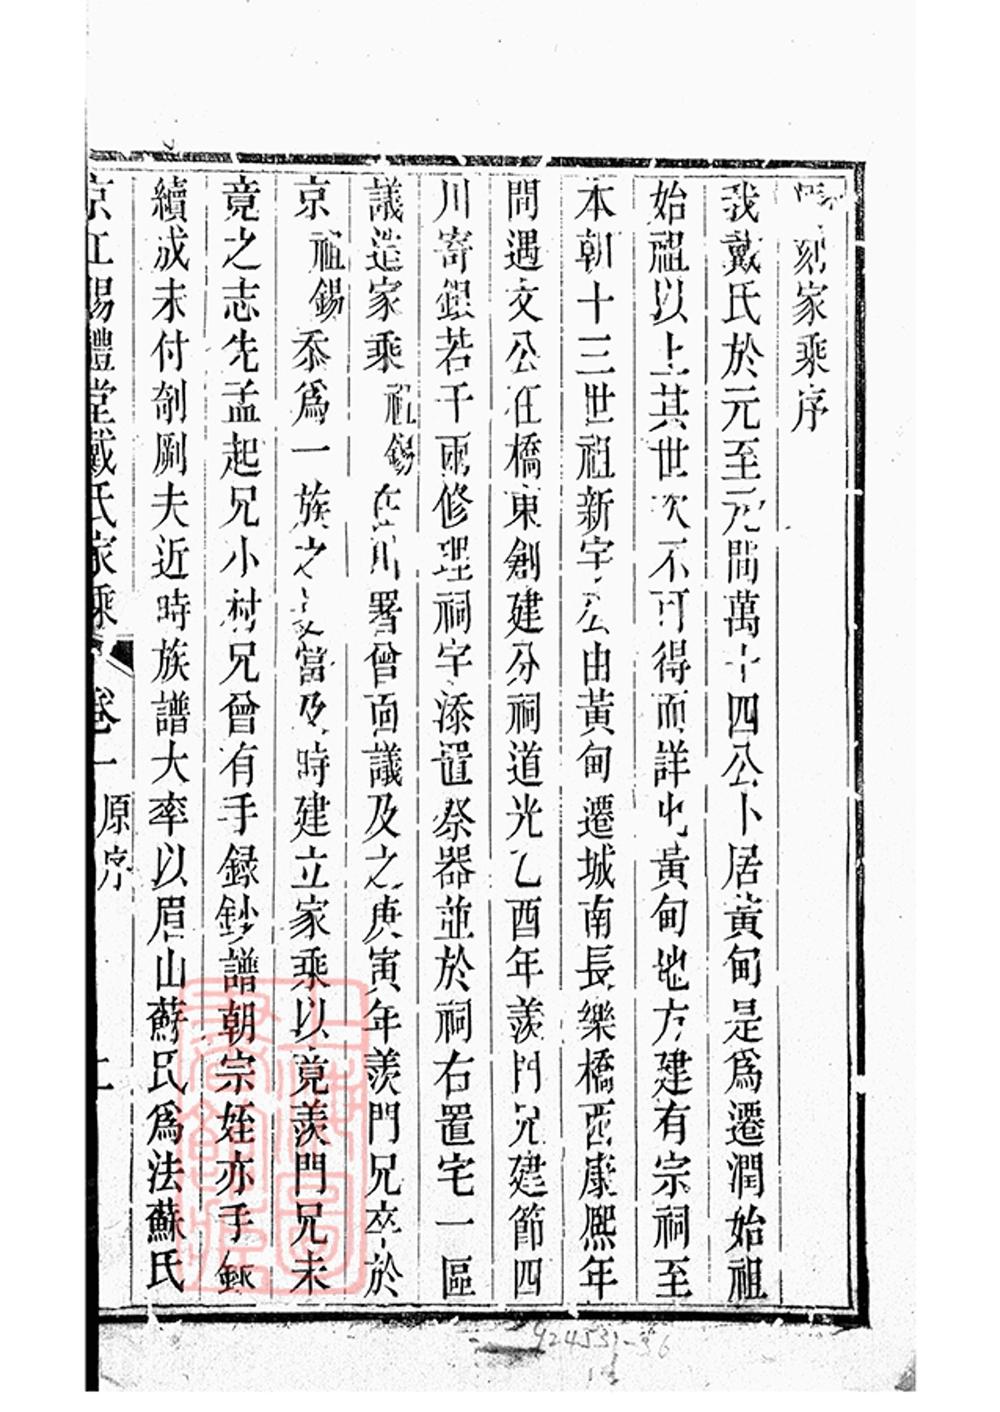 刻家乘序
我戴氏於元至元間萬十四公卜居黃甸是爲遷潤始祖
始祖以上其世次不可得而詳也黃甸地方建有宗祠至
本朝十三世祖新宇公由黃甸遷城南長樂橋西康熙年
間遇文公在橋東創建分祠道光乙酉年羨門兄建節四
川寄銀若干兩修理祠宇添置祭器並於祠右置宅一區
議造家乘祖錫在川署曾面議及之庚寅年羨門兄卒於
京祖錫忝爲一族之長當及時建立家乘以竟羨門兄未
竟之志先孟起兄小村兄曾有手録鈔譜朝宗姪亦手鈔
續成未付剞劂夫近時族譜大率以眉山蘇氏爲法蘇氏
京江錫禮堂戴氏家乘 卷一 原序 上
上海圖書館藏
924531-36